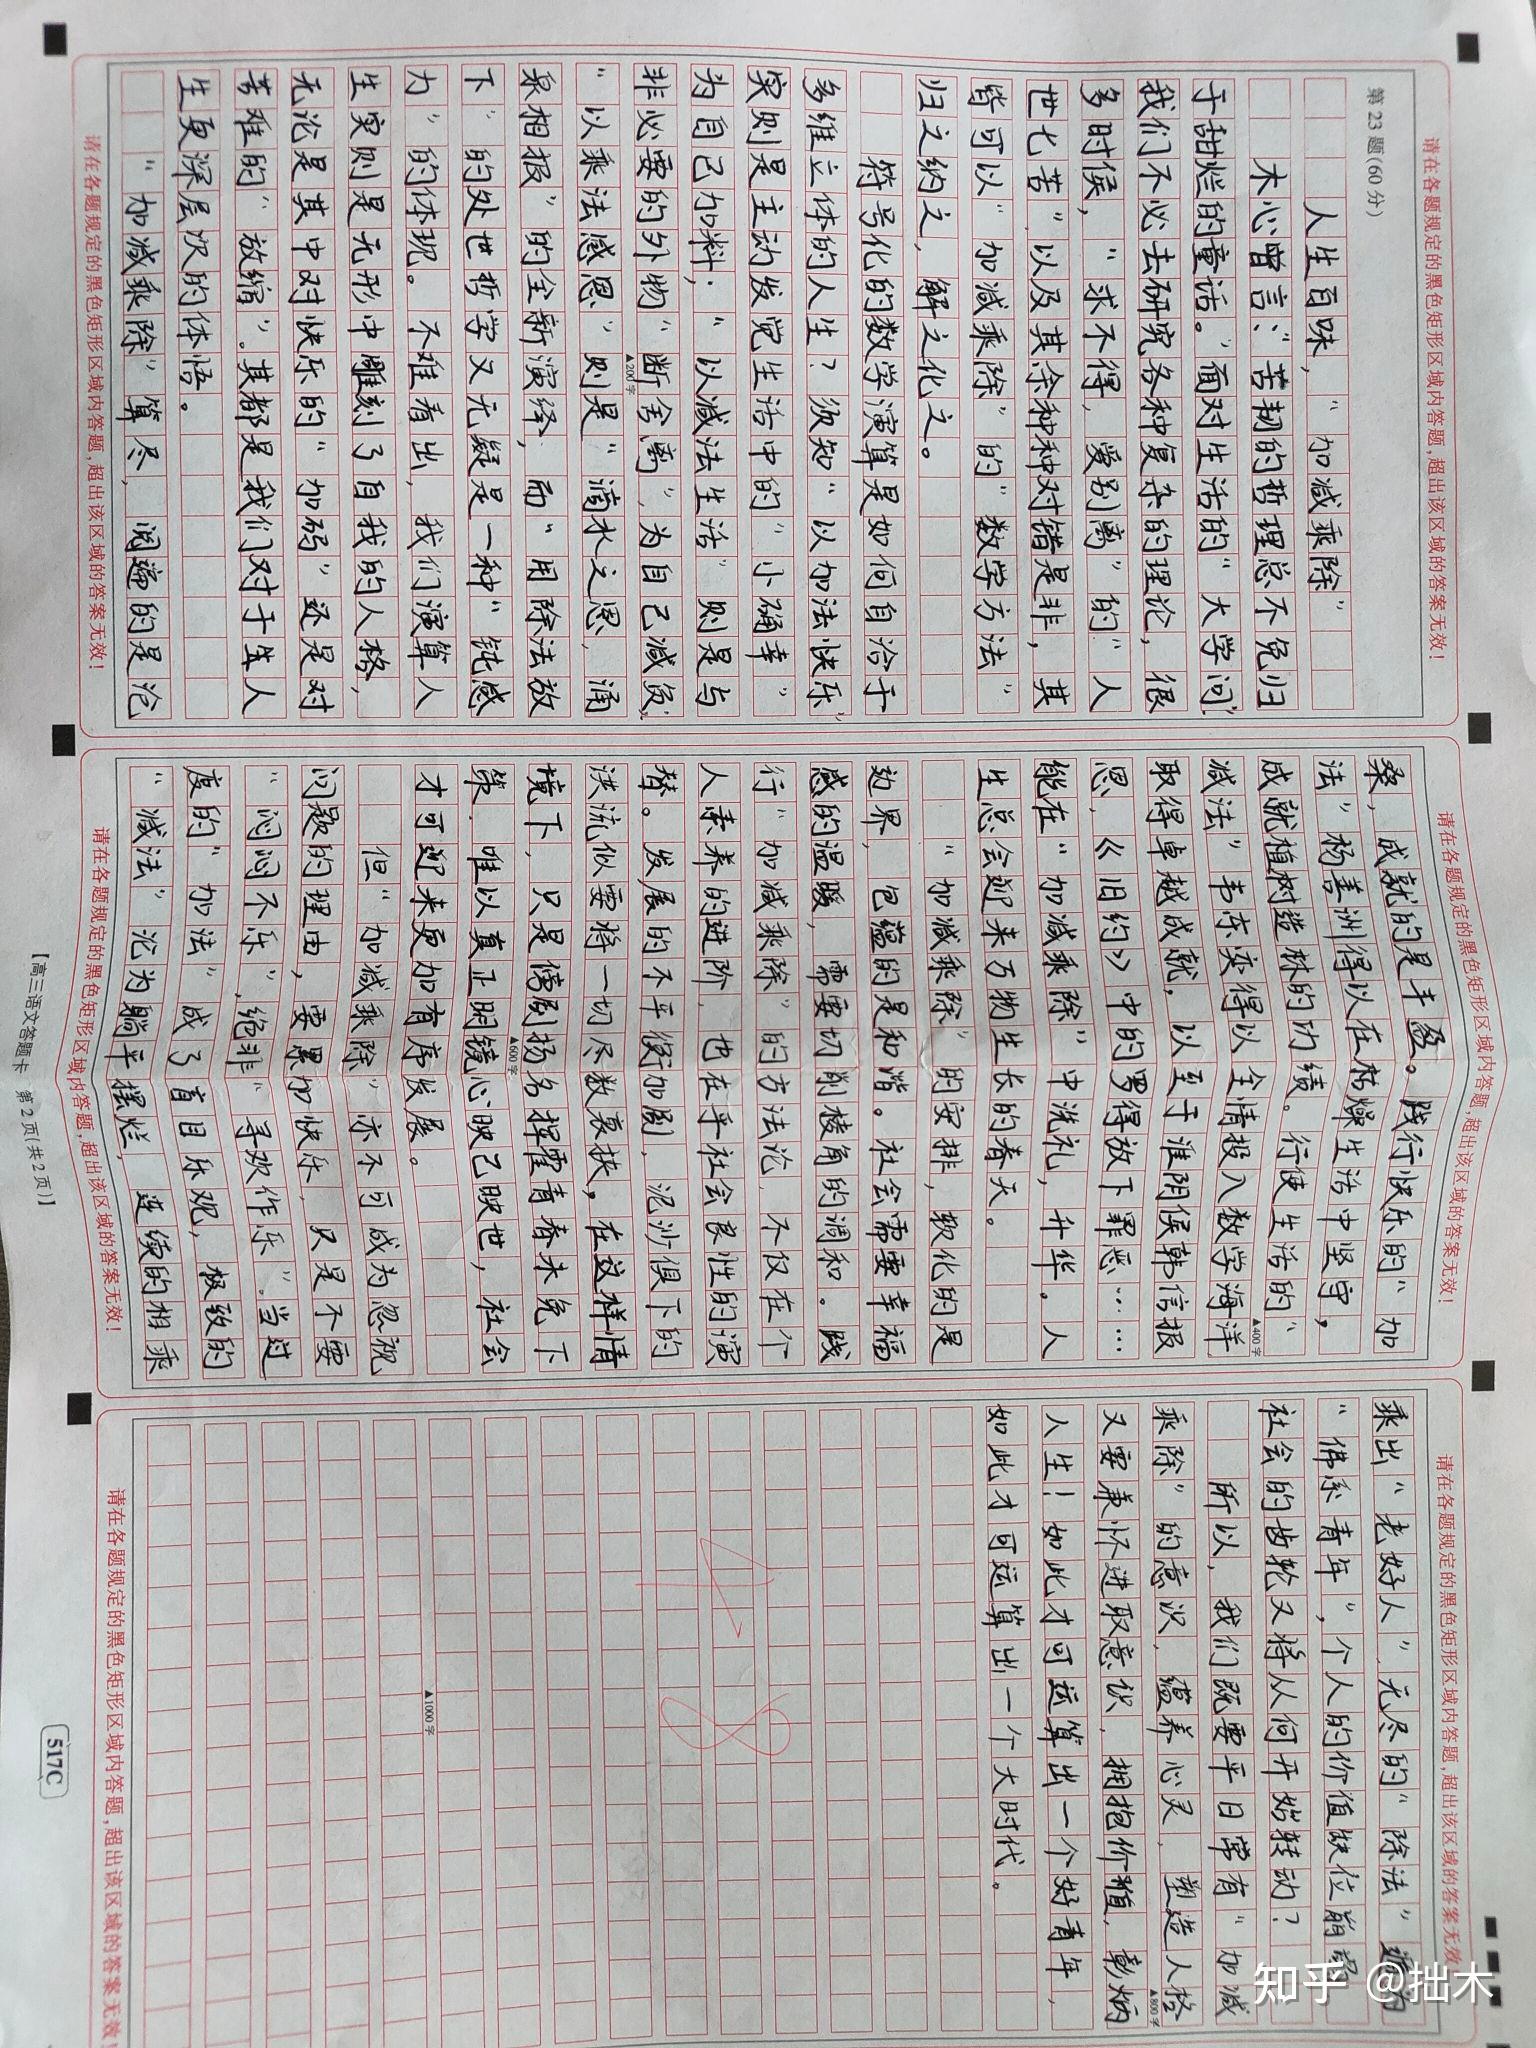 请在各题规定的黑色矩形区域内答题,超出该区域的答案无效!
第23题(60分)
人生百味,“加减乘除”
木心曾言:“苦韧的哲理总不免归
于甜烂的童话。”面对生活的“大学问”,
我们不必去研究各种复杂的理论,很
多时侯,“求不得,爱别离”的“人
世七苦”以及其余种种对错是非,其
皆可以“加减乘除”的“数学方法”
归之纳之,解之化之。
符号化的数学演算是如何自洽于
多维立体的人生?须知“以加法快乐”
实则是主动发觉生活中的“小确幸”
为自己加料;“以减法生活”则是与
非必要的外物“断舍离”,为自己减负;
▲200字
“以乘法感恩”则是“滴水之恩,涌
泉相报”的全新演绎,而“用除法放
下”的处世哲学又无疑是一种“钝感
力”的体现。不难看出,我们演算人
生实则是无形中雕刻了自我的人格,
无论是其中对快乐的“加码”还是对
苦难的“放缩”。其都是我们对于生人
生更深层次的体悟。
“加减乘除”算尽,阅遍的是沧
请在各题规定的黑色矩形区域内答题,超出该区域的答案无效!
请在各题规定的黑色矩形区域内答题,超出该区域的答案无效!
桑,成就的是丰盈。践行快乐的“加
法”杨善洲得以在枯燥生活中坚守,
成就植树造林的功绩。行使生活的“
减法”韦东奕得以全情投入数学海洋
▲400字
取得卓越成就,以至于淮阴侯韩信报
恩,《旧约》中的罗得放下罪恶……
能在“加减乘除”中洗礼,升华。人
生总会迎来万物生长的春天。
“加减乘除”的安排,软化的是
边界,包蕴的是和谐。社会需要幸福
感的温暖,需要切削棱角的调和。践
行“加减乘除”的方法论,不仅在个
人素养的进阶,也在乎社会良性的演
替。发展的不平衡加剧,泥沙俱下的
洪流似要将一切尽数裹挟,在这样情
境下,只是傍厨扬名挥霍青春未免下
策,唯以真正明镜心映己映世,社会
▲600字
才可迎来更加有序发展。
但“加减乘除”亦不可成为忽视
问题的理由,要累加快乐,只是不要
“闷闷不乐”,绝非“寻欢作乐”。当过
度的“加法”成了盲目乐观,极致的
“减法”沦为躺平摆烂,连续的相乘
请在各题规定的黑色矩形区域内答题,超出该区域的答案无效!
【高三语文答题卡 第2页(共2页)】
请在各题规定的黑色矩形区域内答题,超出该区域的答案无效
乘出“老好人”,无尽的“除法”
“佛系青年”,个人的价值缺位
社会的齿轮又将从何开始转动?
所以,我们既要平日常有“加减
乘除”的意识,蕴养心灵,塑造人格
▲800字
又要兼怀进取意识,拥抱价值,彰炳
人生!如此才可运算出一个好青年,
如此才可运算出一个大时代。
48
▲1000字
请在各题规定的黑色矩形区域内答题,超出该区域的答案无效!
517C
知乎 @拙木